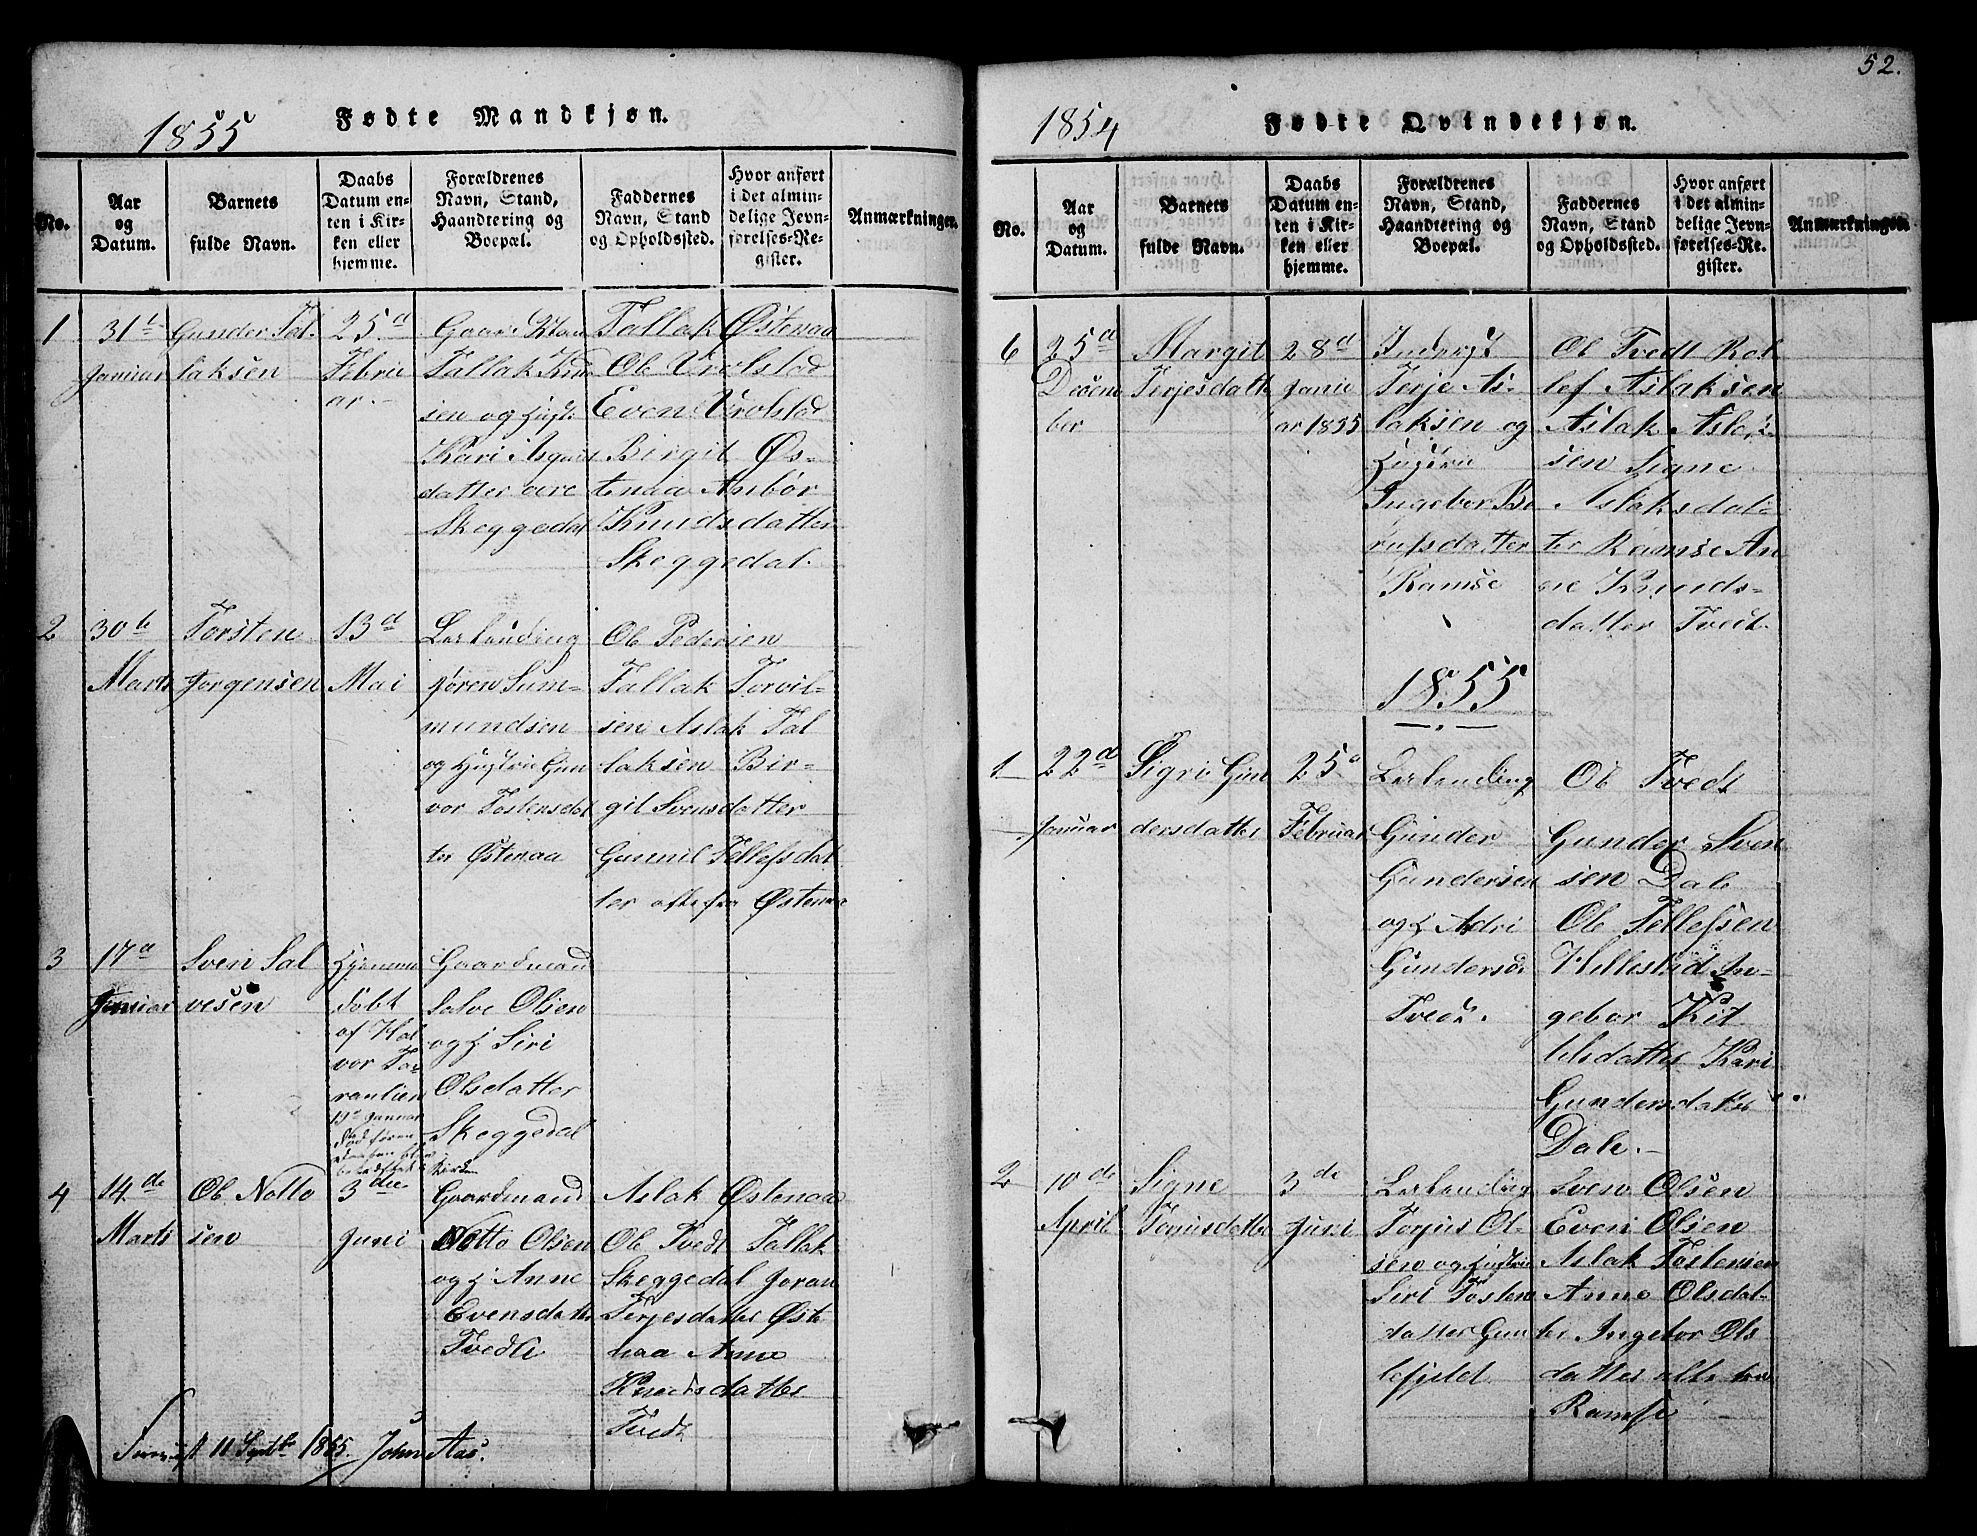 1855
Fødte Mandkjøn.
No.
Aar
og
Datum.
Barnets
fulde Navn.
Daabs
Datum en-
ten i Kir-
ken eller
hjemme.
Forældrenes
Navn, Stand,
Haandtering og
Boepæl.
Faddernes
Navn, Stand
og Opholdssted.
Hvor anført
i det almin-
delige Jevn-
førelses-Re-
gister.
Anmærkninger.
1
31te
Januar
Gunder Tal-
laksen
25d
Februa
ar.
Tallak Knu
sen og Hustr
Kari Asguts
datter øvre
Skeggedal
Tallak Østenaa
Ole Vrolstad
Even Vrolstad
Birgit Øs-
tenaa Anbør
Knudsdatter
Skeggedal.
2
30te
Marts
Torsten
Jorgensen
13d
Mai
Leilending
Jören Sum-
mundsen
og Hustrue Gun
vor Tostensdat
ter Østenaa
Ole Pedersen
Tallak Torvil-
sen Aslak Tal
laksen Bir-
git Svensdatter
Gunnil Tellefsdat
ter alle fra Østenaa
3
17d
Januar
Sven Sal
vesen
Hjemme
døbt
af Hal
vor To-
19d Januar
Gaardmand
Salve Olsen
og H Siri
Olsdatter
Skeggedal
4
14de
Marts
Ole Notto
sen
3die
Juni
Gaardmand
Notto Olsen
og H Anne
Evensdatter
Tvedt
Aslak Østenaa
Ole Tvedt Tallak
Skeggedal Joran
Terjesdatter Øste
naa Anne
Knudsdatter
Tvedt
11 Septbr 1855. John Aas.
52.
1854
Fødte Qvindekjøn.
No.
Aar
og
Datum.
Barnets
fulde Navn.
Daabs
Datum en-
ten i Kir-
ken eller
hjemme.
Forældrenes
Navn, Stand,
Haandtering og
Boepæl.
Faddernes
Navn, Stand
og Opholdssted.
Hvor anført
i det almin-
delige Jevn-
førelses-Re-
gister.
Anmærkninger.
6
25d
Decem
ber
Margit
Terjesdatte
28d
Janu
ar 1855
Inderst
Terje As-
laksen og
Hustrue
Ingebor Be
rulfsdatter
Ramse
Ole Tvedt Rol
lef Aslaksen
Aslak Aslak
sen Signe
Aslaksdat-
ter Ramse An
ne Knuds-
datter Tveit.
1855
1
22d
Januar
Sigri Gun
dersdatter
25d
Februar
Leilending
Gunder
Gundersen
og H Adri
Gundersd
Tvedt.
Ole Tvedt
Gunder Sven
sen Dale
Ole Tellefsen
Hillestad In-
gebor Kit
telsdatter Kari
Gundersdatte
Dale.
2
10de
April
Signe
Torjusdatter
3de
Juni
Leilending
Torjus Ol-
sen og Hustrue
Siri Tosten
datter Gun
lefjeld
Sven Olsen
Even Olsen
Aslak Tostensen
Anne Olsdat-
ter Ingebor Ols
datter alle fra
Ramse